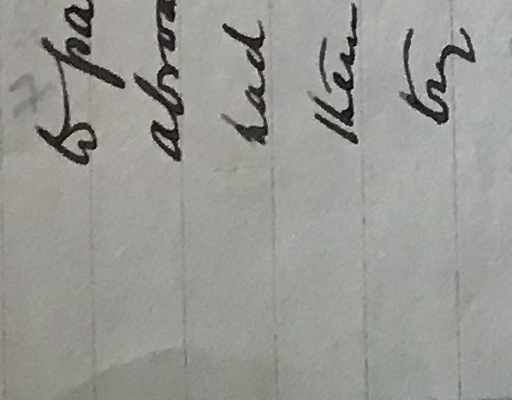 to pa
abroa
had
them
try